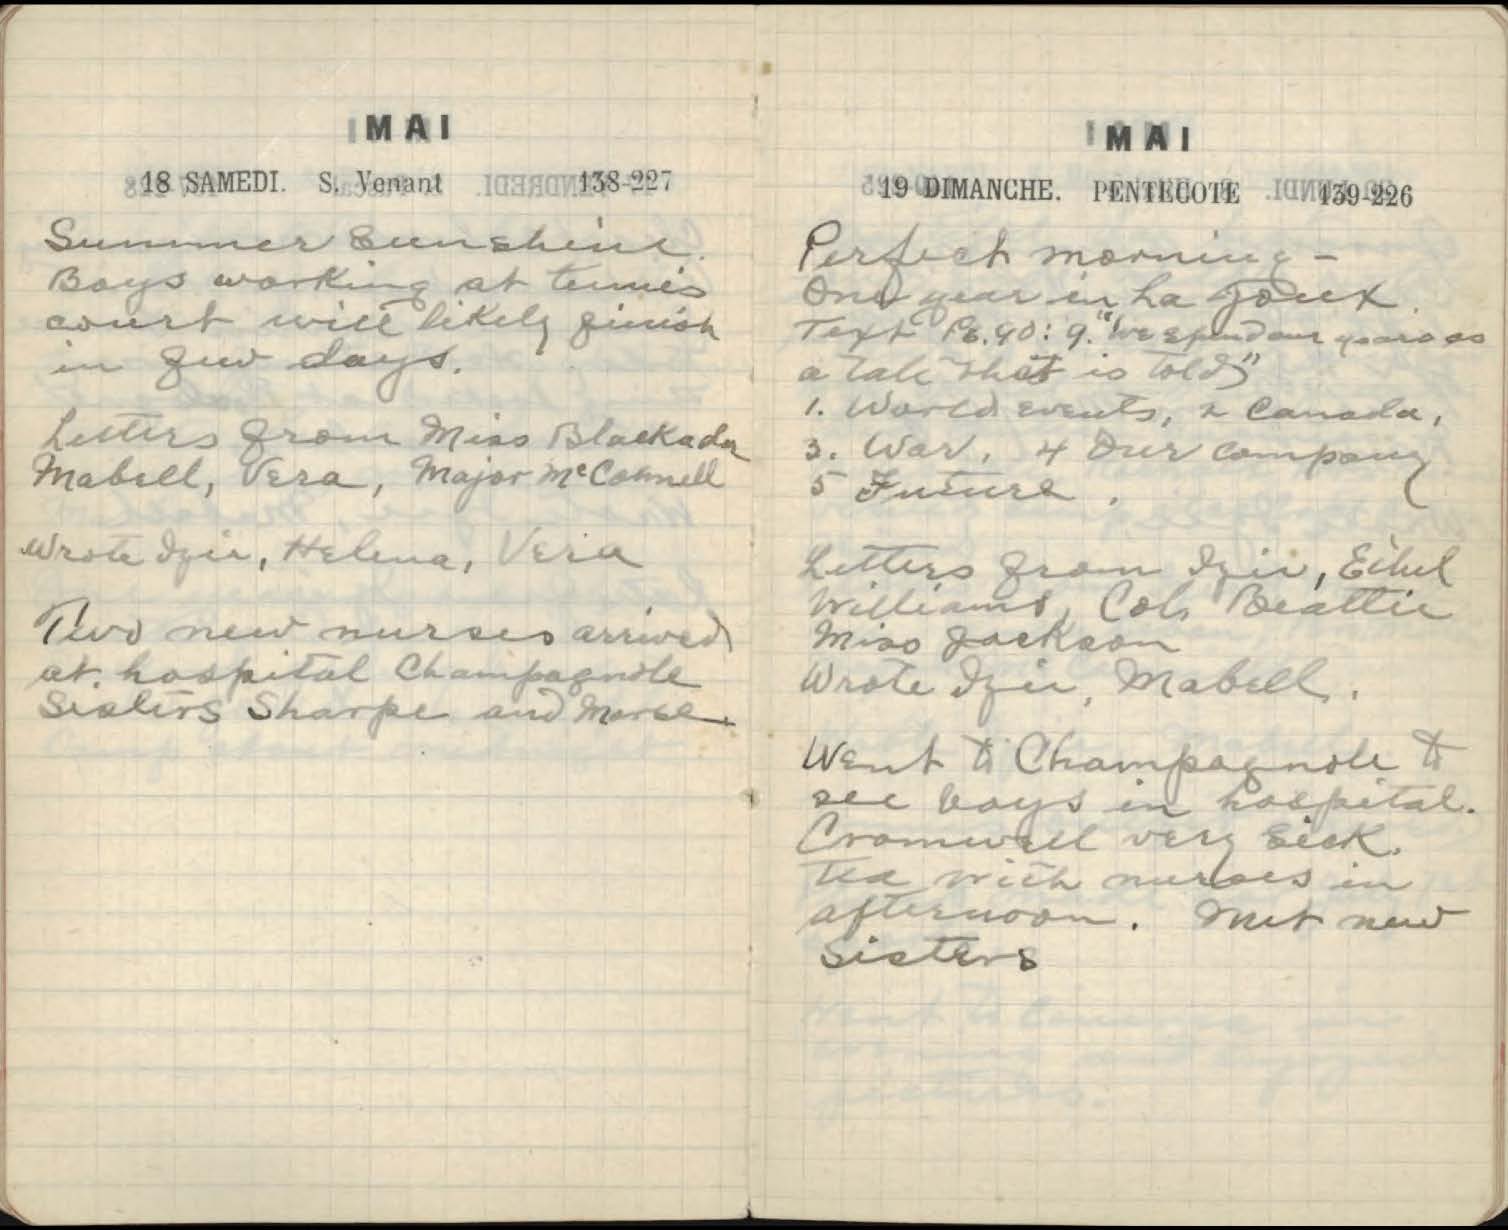 MAI
18 SAMEDI. S. Venant 138-227
Summer Sunshine.
Boys working at tennis
court will likely finish
in few days.
Letters from Miss Blackadar
Mabell, Vera, Major McConnell
Wrote Izie, Helena, Vera
Two new nurses arrived
at hospital Champagnole
Sisters Sharpe and Morse.
MAI
19 DIMANCHE. PENTECOTE 139-226
Perfect morning -
One year in La Joux.
Text Ps. 90: 9. "We spend our years as
a tale that is told"
1. World events, 2 Canada,
3. War. 4 Our company
5 Future.
Letters from Izie, Ethel
Williams, Col. Beattie
Miss Jackson
Wrote Izie, Mabell.
Went to Champagnole to
see boys in hospital.
Cromwell very sick.
Tea with nurses in
afternoon. Met new
sisters